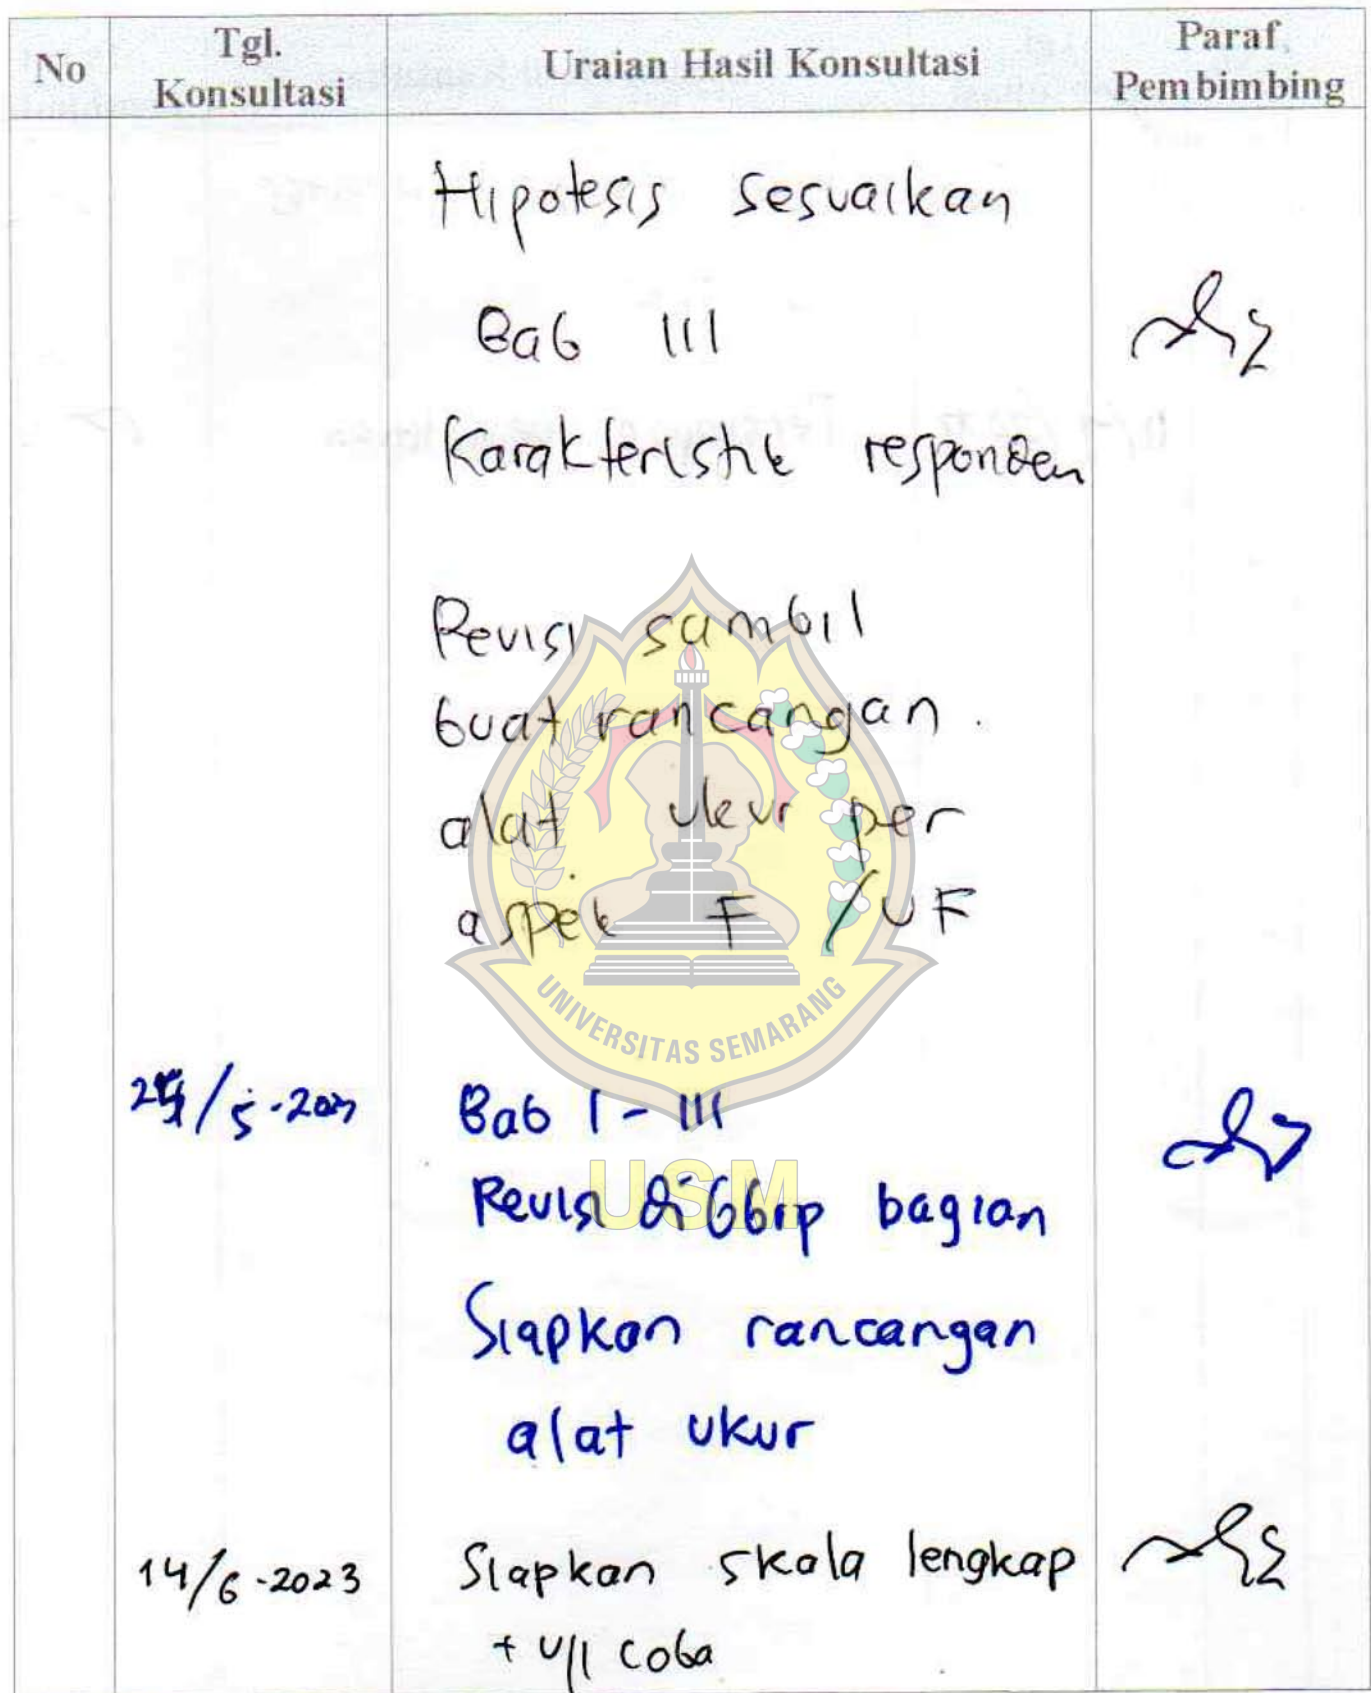 No Tgl. Konsultasi Uraian Hasil Konsultasi Paraf Pembimbing
Hipotesis sesuaikan
Bab III
Karakteristik responden
Revisi sambil
buat rancangan.
alat ukur per
aspek F / UF
UNIVERSITAS SEMARANG
/5-2023 Bab I - III
USM
Revisi di bbrp bagian
Siapkan rancangan
alat ukur
14/6-2023 Siapkan skala lengkap
+ uji coba